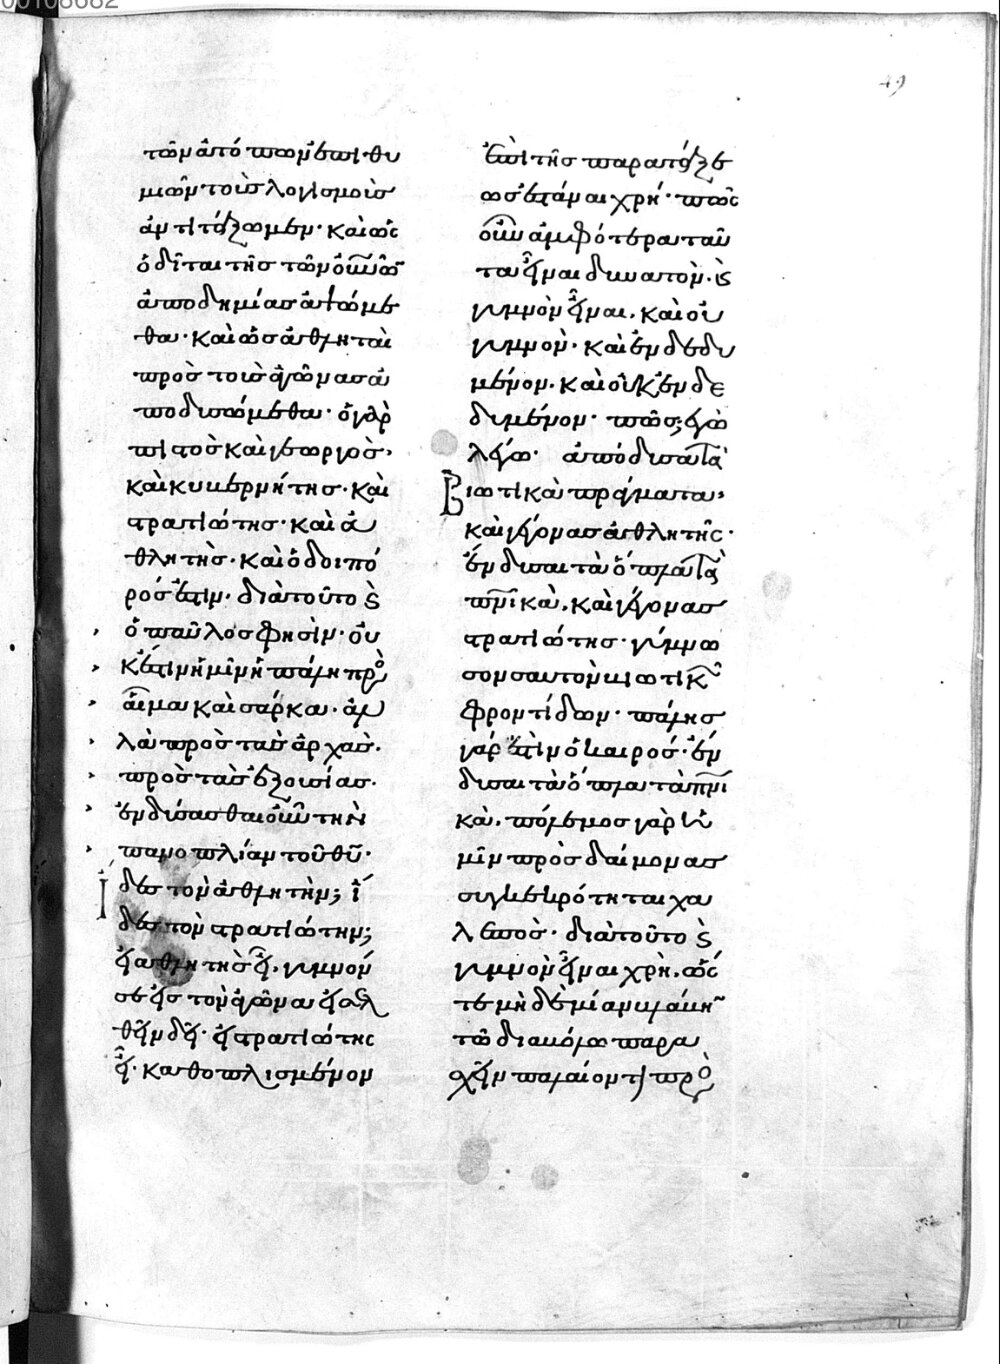 00108682
49
τῶν ἀτόπων ἐπιθυ
μιῶν τοῖς λογισμοῖς
ἀντιτάξωμεν· καὶ ὡς
ὁδῖται τῆς τῶν οὐνῶν
ἀποδημίας ἁψώμε
θα· καὶ ὡς ἀθληταὶ
πρὸς τοὺς ἀγῶνας ἀ
ποδυσώμεθα· ὁ γὰρ
πιστὸς καὶ γεωργὸς·
καὶ κυβερνήτης· καὶ
στρατιώτης· καὶ ἀ
θλητὴς· καὶ ὁδοιπό
ρός ἐστιν· διὰ τοῦτο ὁ
ὁ παῦλος φησὶν· οὐ
κ ἔστιν ἡμῖν ἡ πάλη πρὸς
αἷμα καὶ σάρκα· ἀλ
λὰ πρὸς τὰς ἀρχάς·
πρὸς τὰς ἐξουσίας·
ἐνδύσασθαι οὖν τὴν
πανοπλίαν τοῦ θῦ·
ἴδες τὸν ἀθλητὴν; ἴ
δες τὸν στρατιώτην;
εἰ ἀθλητὴς εἶ, γυμνόν
σε εἰς τὸν ἀγῶνα εἰσελ
θεῖν δεῖ· εἰ στρατιώτης
εἶ· καθοπλισμένον
ἐπὶ τῆς παρατάξε
ως ἑστάναι χρή· πῶς
οὖν ἀμφότερα ταῦ
τα εἶναι δυνατὸν· καὶ
γυμνὸν εἶναι, καὶ οὐ
γυμνὸν· καὶ ἐνδεδυ
μένον· καὶ οὐκ ἐνδε
δυμένον· πῶς; ἐγὼ
λέγω· ἀπόδυσαι τὰ
βιωτικὰ πράγματα,
καὶ γέγονας ἀθλητής·
ἔνδυσαι τὰ ὅπλα τὰ
πνικὰ, καὶ γέγονας
στρατιώτης· γύμνω
σον σαυτὸν βιωτικῶν
φροντίδων· πάλης
γάρ ἐστιν ὁ καιρός· ἔν
δυσαι τὰ ὅπλα τὰ πνι
κὰ. πόλεμος γὰρ ἡ
μῖν πρὸς δαίμονας
συγκεκρότηται χα
λεπὸς· διὰ τοῦτο καὶ
γυμνὸν εἶναι χρὴ, ὥς
τε μὴ δὲ μίαν λάβην
τῷ διαβόλω παρα
σχεῖν παλαίοντι πρὸς